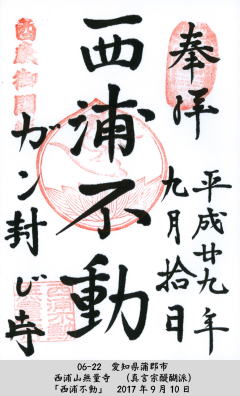 奉拝
平成廿九年
九月拾日
西浦不動
ガン封じ寺
06-22 愛知県蒲郡市
西浦山無量寺 (真言宗醍醐派)
「西浦不動」 2017年9月10日